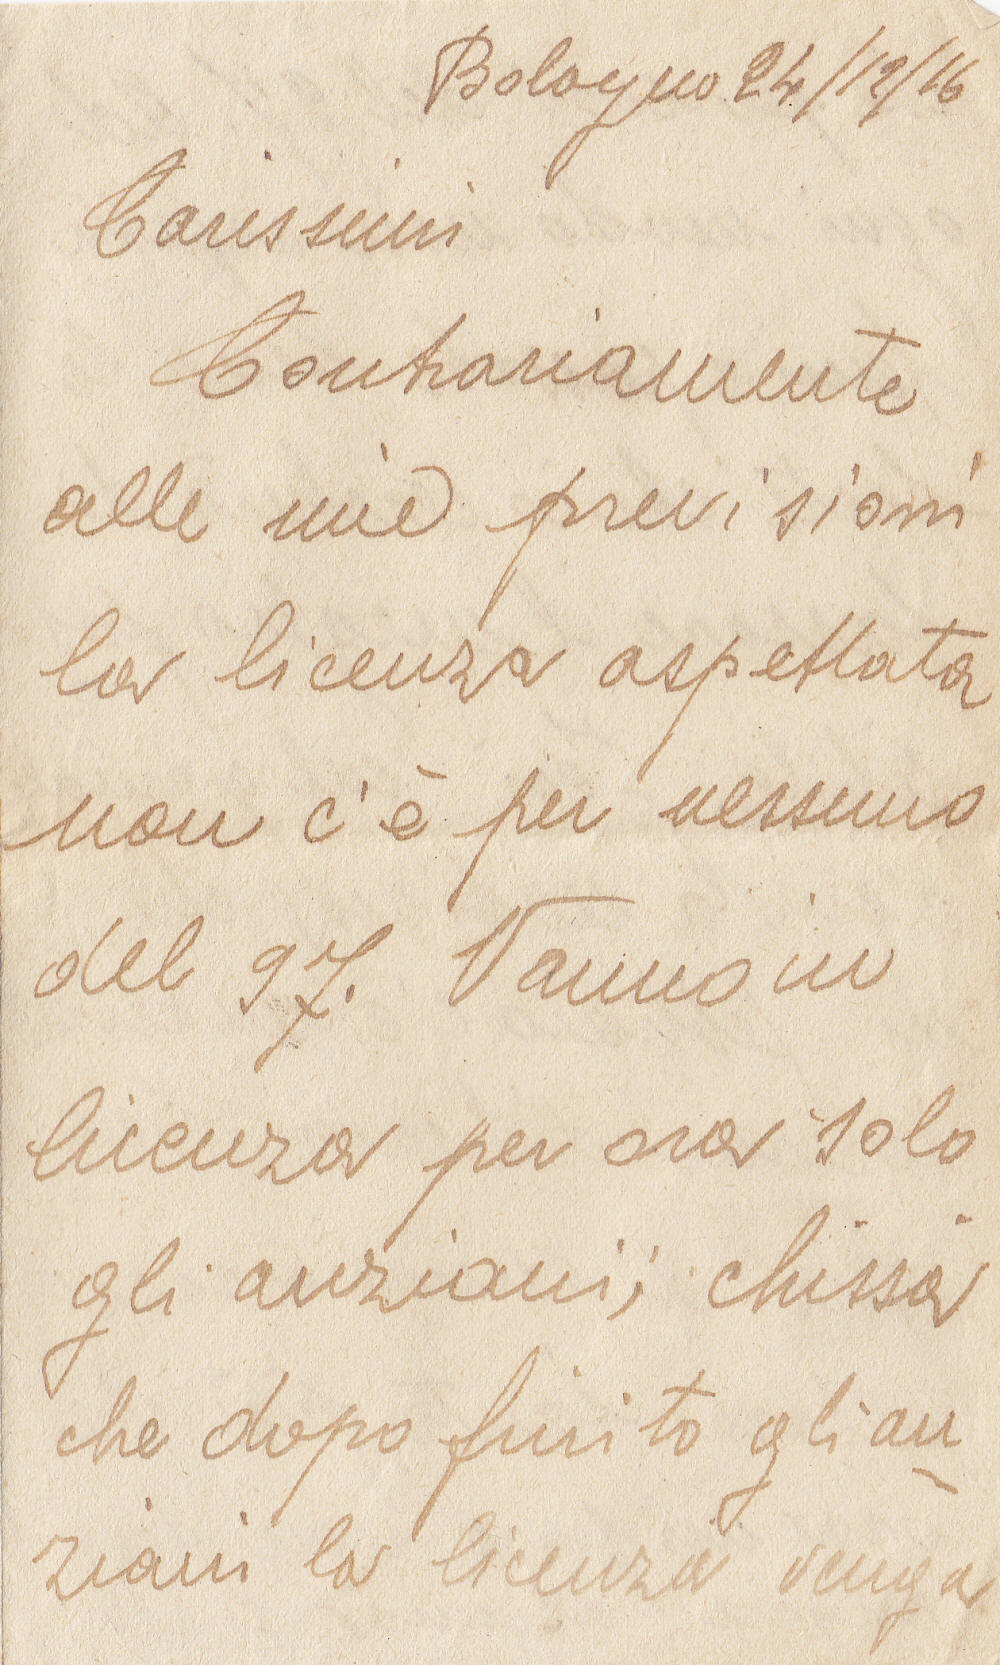 Bologna 24/12/16
Carissimi
Contrariamente
alle mie previsioni
la licenza aspettata
non c'è per nessuno
del 97. Vanno in
licenza per ora solo
gli anziani; chissà
che dopo finito gli an
ziani la licenza venga